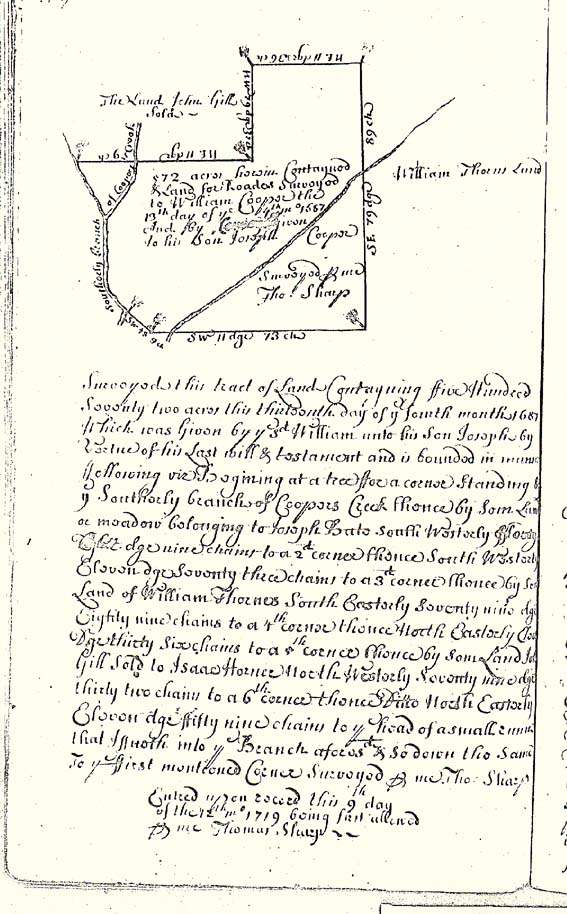 NE 11 dgr 36 ch
The Land John Gill
Sold
NW 79 dgr 32 ch
89 ch
SE. 79 dgr
NE 11 dgr 59 ch
William Thorns Land
of Coopers Creek
Southerly Branch
572 acres herein Contayned
& Land for Roades Surveyed
to William Cooper the
13th day of ye 4th mo 1687
And by Given
to his Son Joseph Cooper
Surveyed p me
Tho: Sharp
SW 11 dgr 73 ch
Surveyed this tract of Land Contayning ffive Hundred
Seventy two acres this thirteenth day of ye fourth month 1687
Which was Given by ye sd William unto his Son Joseph by
Vertue of his Last will & testament and is bounded in
ffollowing viz Begining at a tree ffor a corner Standing by
ye Southerly branch of Coopers Creek thence by Som Land
or meadow belonging to Joseph Bate South Westerly
dgr nine chains to a 2d corner thence South Westerly
Eleven dgr Seventy three chains to a 3d corner thence by Som
Land of William Thornes South Easterly Seventy nine dgr
Eighty nine chains to a 4th corner thence North Easterly
Dgr thirty Six chains to a 5th corner thence by Som Land
Gill Sold to Isaac Horner North Westerly Seventy nine dgr
thirty two chains to a 6th corner thence Ditto North Easterly
Eleven dgr ffifty nine chains to ye head of a small runn
that Issueth into ye Branch aforesd & So down the Same
To ye ffirst mentioned Corner Surveyed p me Tho: Sharp
Entred upon record this 9th day
of the 12th mo 1719 being ffirst allowed
p me Thomas Sharp